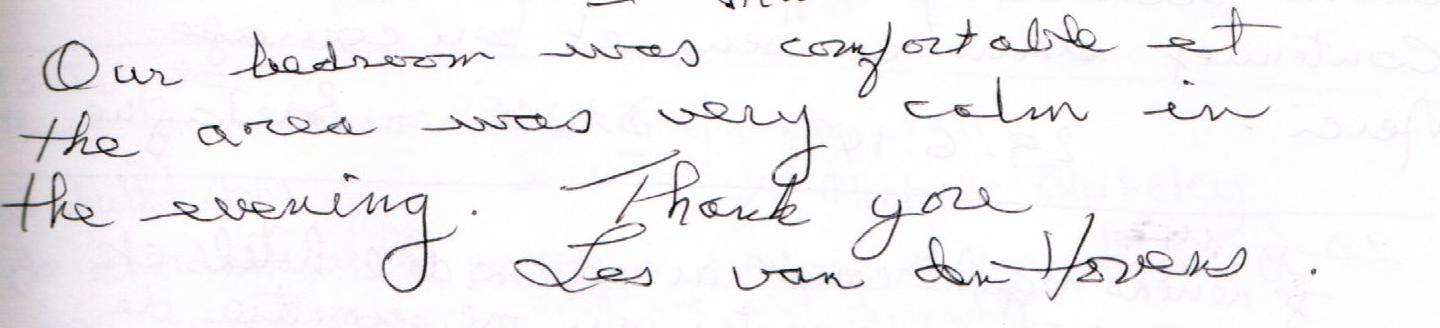 Our bedroom was comfortable et
the area was very calm in
the evening. Thank you
Les van den Hovens.